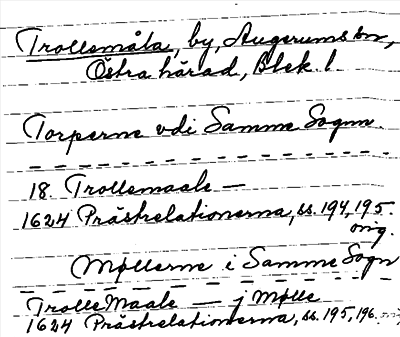 Trollsmåla, by, Augerums sn,
Östra härad, Blek. l.
Torperne vdi Samme Sognn.
18. Trollsmaale —
1624 Prästrelationerna, ss. 194, 195.
orig.
Møllerne i Samme Sogn
Trolle Maale — j Mølle
1624 Prästrelationerna, ss. 195, 196.